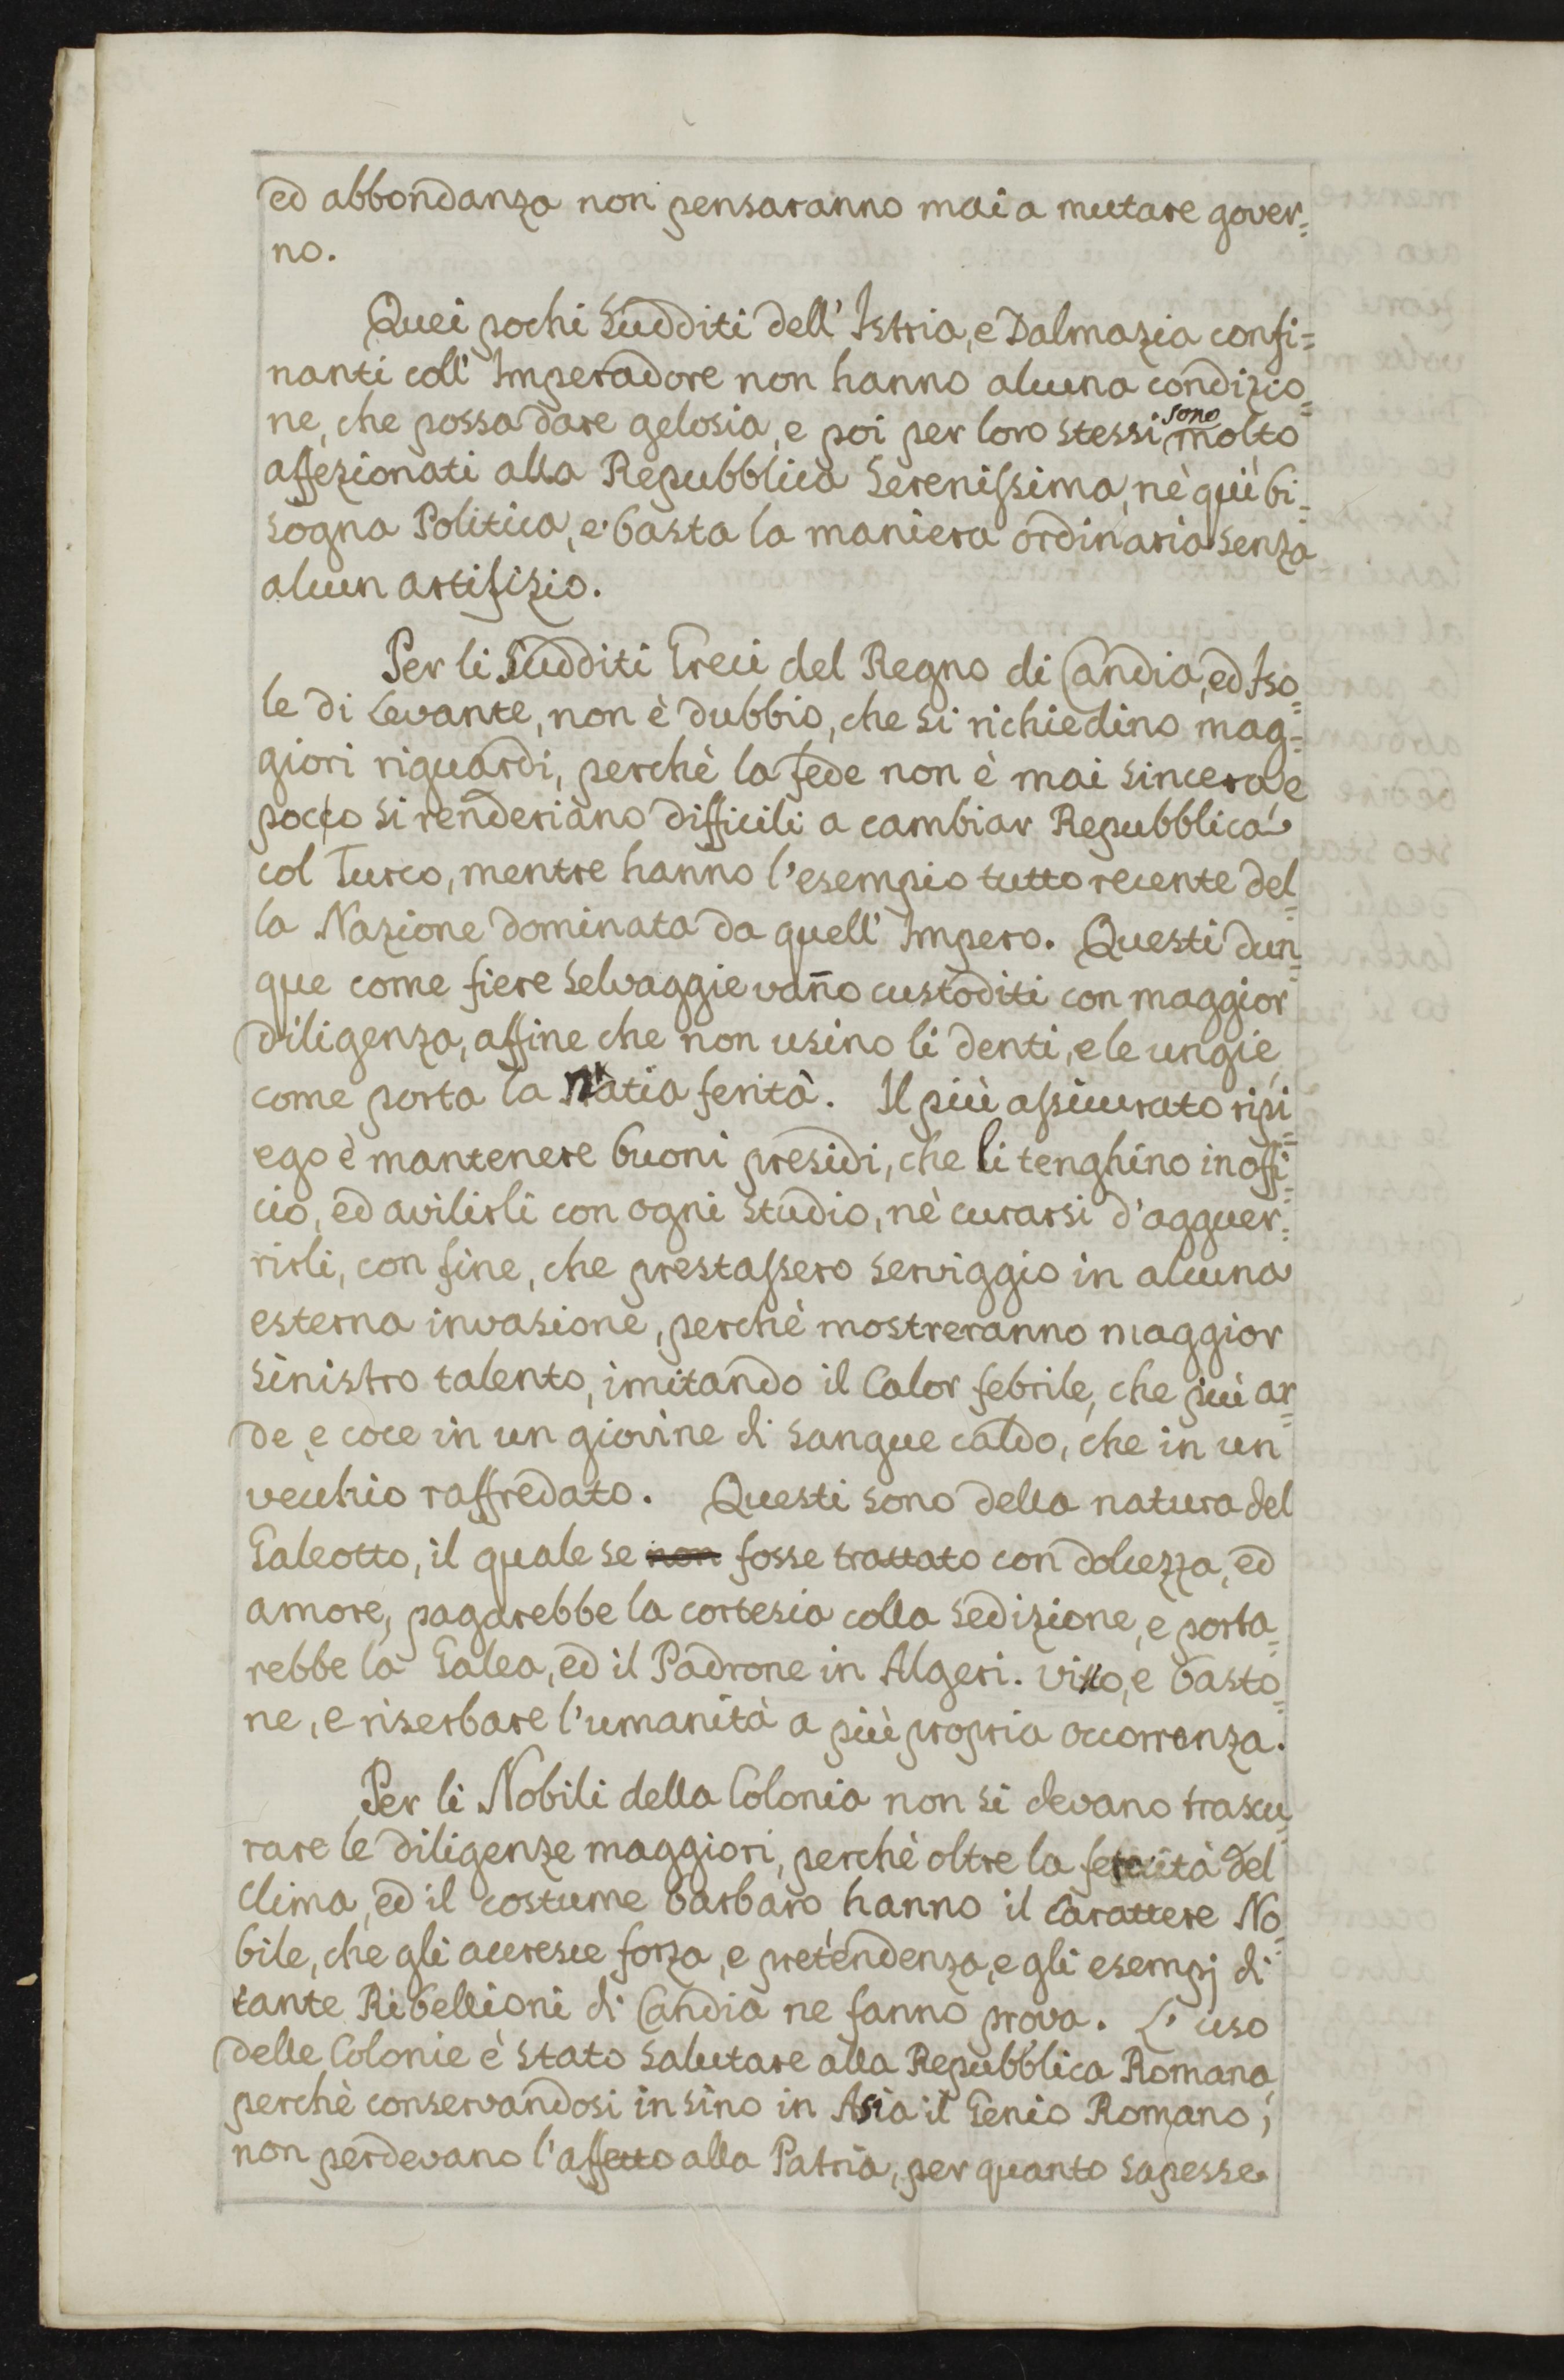 ed abbondanza non pensaranno mai a mutare gover=
no.
Quei pochi Sudditi dell' Istria, e Dalmazia confi=
nanti coll' Imperadore non hanno alcuna condizio=
ne, che possa dare gelosia, e poi per loro stessi sono molto
affezionati alla Repubblica Serenissima, nè quì bi=
sogna Politica, e basta la maniera ordinaria senza
alcun artifizio.
Per li Sudditi Greci del Regno di Candia, ed Iso=
le di Levante, non è dubbio, che si richiedino mag=
giori riguardi, perchè la fede non è mai sincera, e
poco si renderiano difficili a cambiar Repubblica
col Turco, mentre hanno l'esempio tutto recente del=
la Nazione dominata da quell' Impero. Questi dun=
que come fiere selvaggie van̄o custoditi con maggior
diligenza, affine che non usino li denti, e le ungie,
come porta la natia ferità. Il più assicurato ripi=
ego è mantenere buoni presidi, che li tenghino in offi=
cio, ed avilirli con ogni studio, nè curarsi d'agguer=
rirli, con fine, che prestassero serviggio in alcuna
esterna invasione, perchè mostreranno maggior
sinistro talento, imitando il Calor febrile, che più ar=
de, e coce in un giovine di sangue caldo, che in un
vecchio raffredato. Questi sono della natura del
Galeotto, il quale se non fosse trattato con dolcezza, ed
amore, pagarebbe la cortesia colla sedizione, e porta=
rebbe la Galea, ed il Padrone in Algeri. e basto=
ne, e riserbare l'umanità a più propria occorrenza.
Per li Nobili della Colonia non si devano trascu=
rare le diligenze maggiori, perchè oltre la del
Clima, ed il costume barbaro, hanno il Carattere No=
bile, che gli accresce forza, e pretendenza, e gli esempj di
tante Ribellioni di Candia ne fanno prova. L' uso
delle Colonie è stato salutare alla Repubblica Romana,
perchè conservandosi in sino in Asia il Genio Romano,
non perdevano l'affetto alla Patria, per quanto sapesse